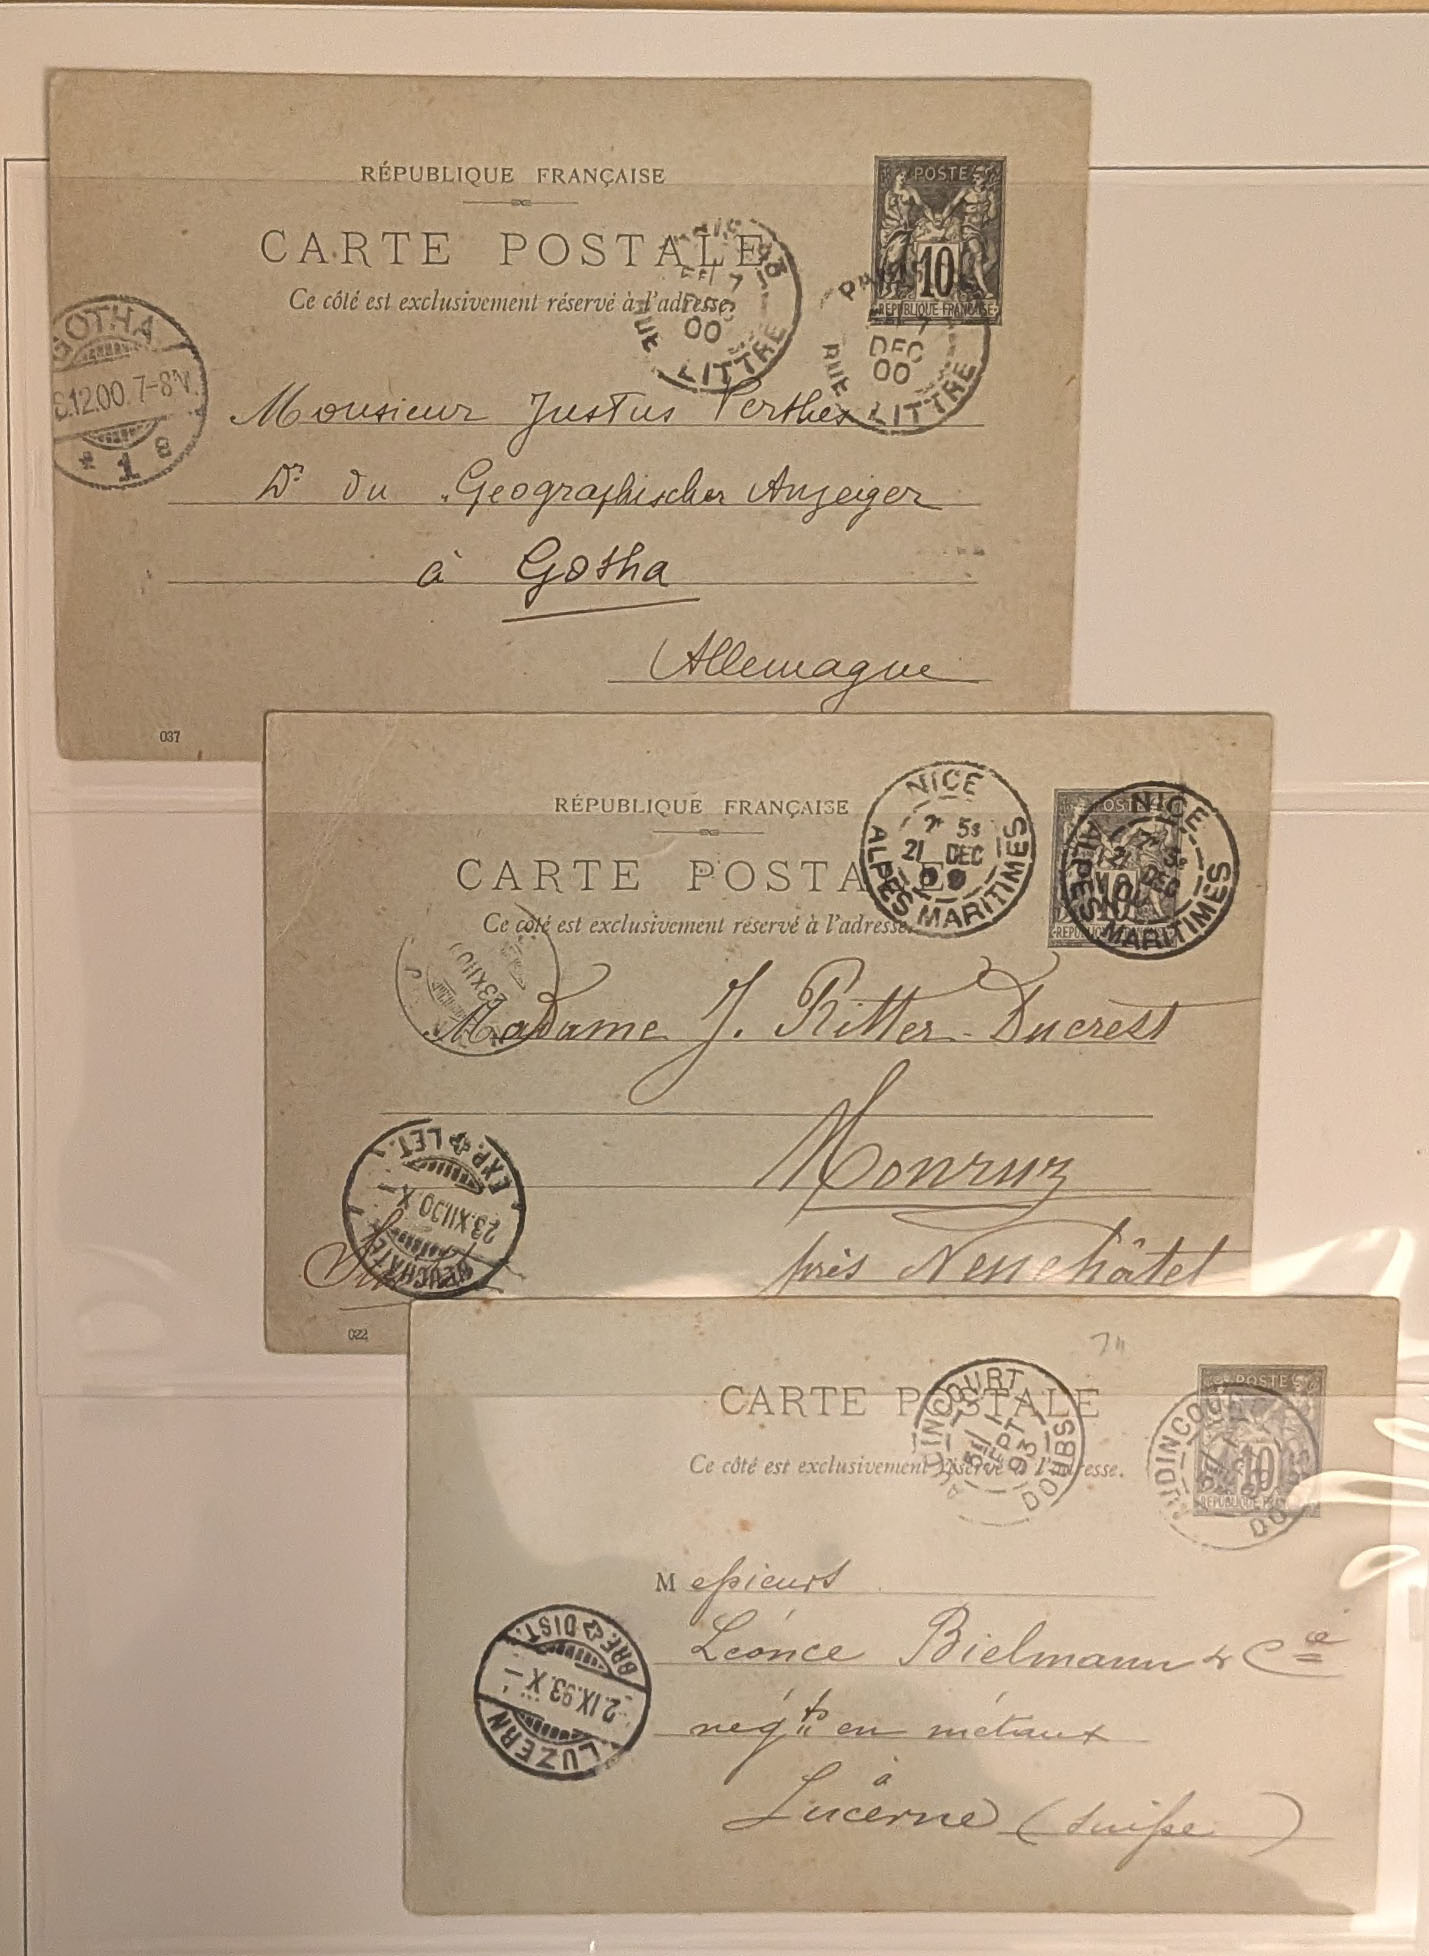 RÉPUBLIQUE FRANÇAISE
CARTE POSTALE
Ce côté est exclusivement réservé à l'adresse.
POSTE
10
RÉPUBLIQUE FRANÇAISE
RUE LITTRÉ
DEC
00
RUE LITTRÉ
7
DEC
00
GOTHA
.12.00. 7-8N.
* 1 e
Monsieur Justus Perthes
Dr du Geographischer Anzeiger
à Gotha
Allemagne
037
RÉPUBLIQUE FRANÇAISE
CARTE POSTALE
Ce côté est exclusivement réservé à l'adresse.
NICE
7e 5s
21 DEC
ALPES MARITIMES
POSTE
10
NICE
DEC
ALPES MARITIMES
23 XII 0
Madame J. Ritter-Ducrest
Monruz
près Neuchâtel
EXP. LET.
23.XII.00. X
NEUCHATEL
022
CARTE POSTALE
Ce côté est exclusivement réservé à l'adresse.
AUDINCOURT
1
SEPT
93
DOUBS
POSTE
10
AUDINCOURT
Mepieurs
Léonce Bielmann & Cie
négts en métaux
à
Lucerne (Suipe)
BRF. DIST.
2.IX.93.X
LUZERN